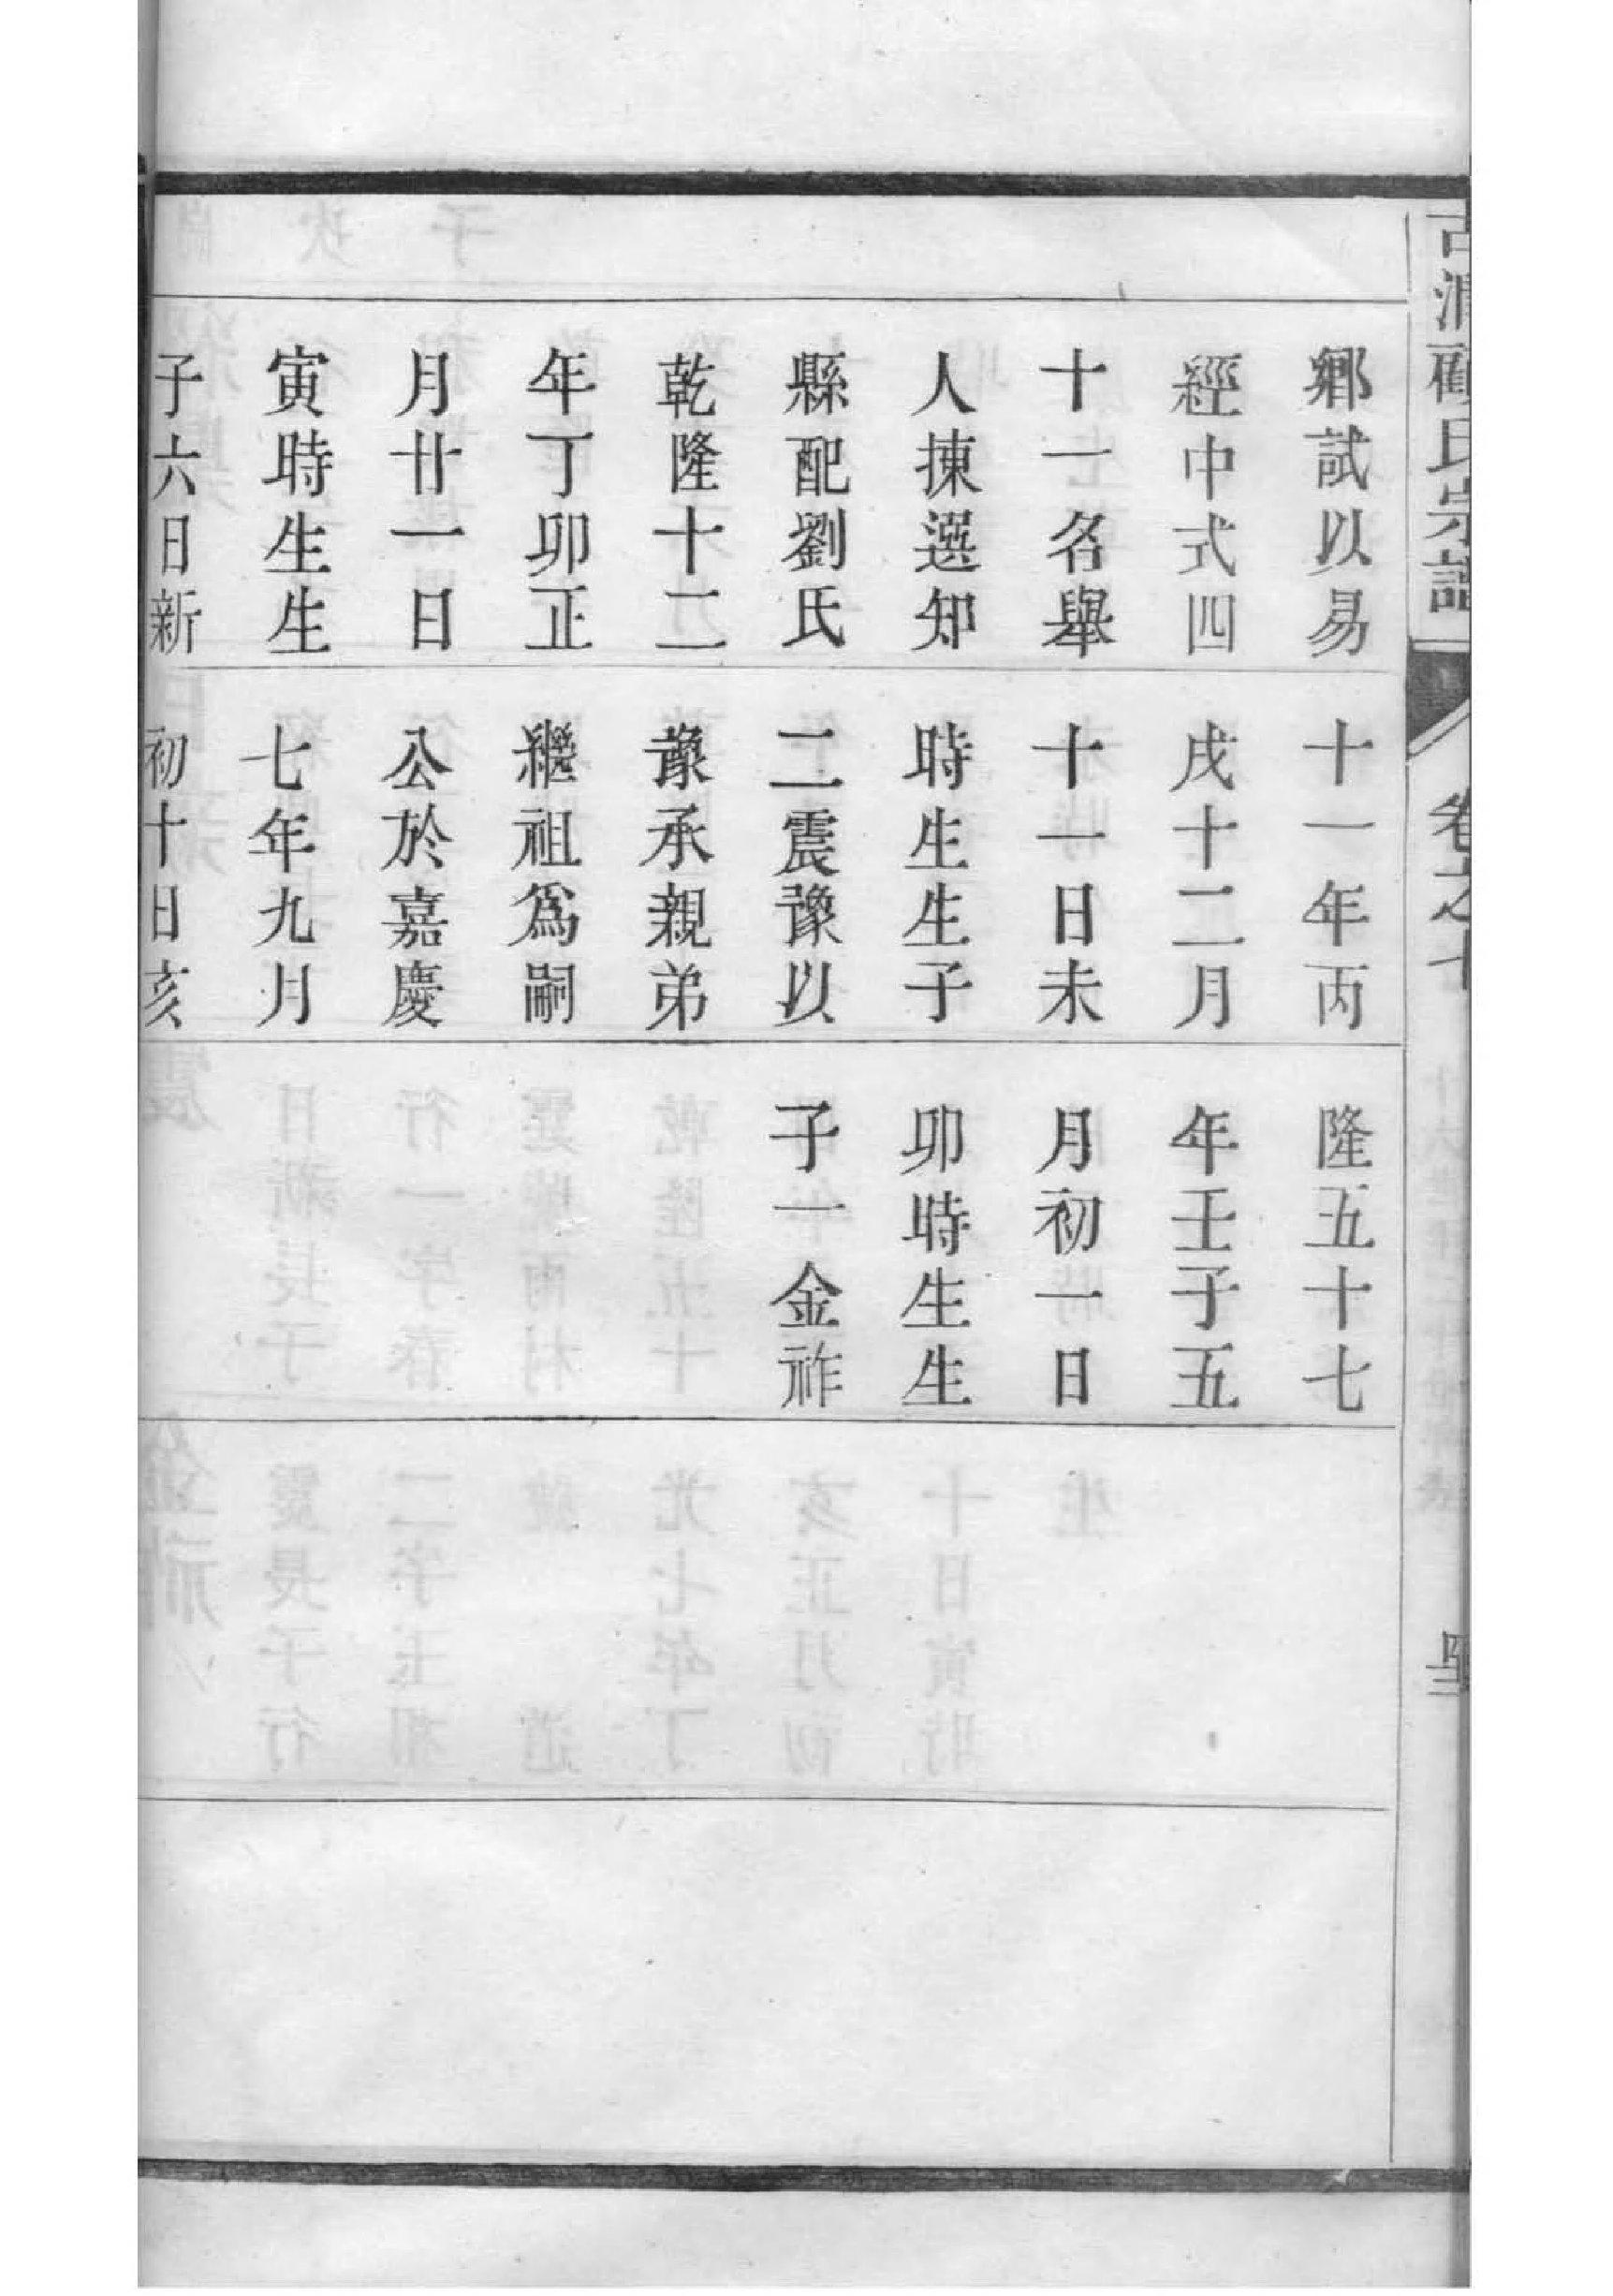 氏宗譜
卷之七
鄉試以易
經中式四
十一名舉
人揀選知
縣配劉氏
乾隆十二
年丁卯正
月廿一日
寅時生生
子六日新
十一年丙
戌十二月
十一日未
時生生子
二震豫以
豫承親弟
繼祖爲嗣
公於嘉慶
七年九月
初十日亥
隆五十七
年壬子五
月初一日
卯時生生
子一金祚